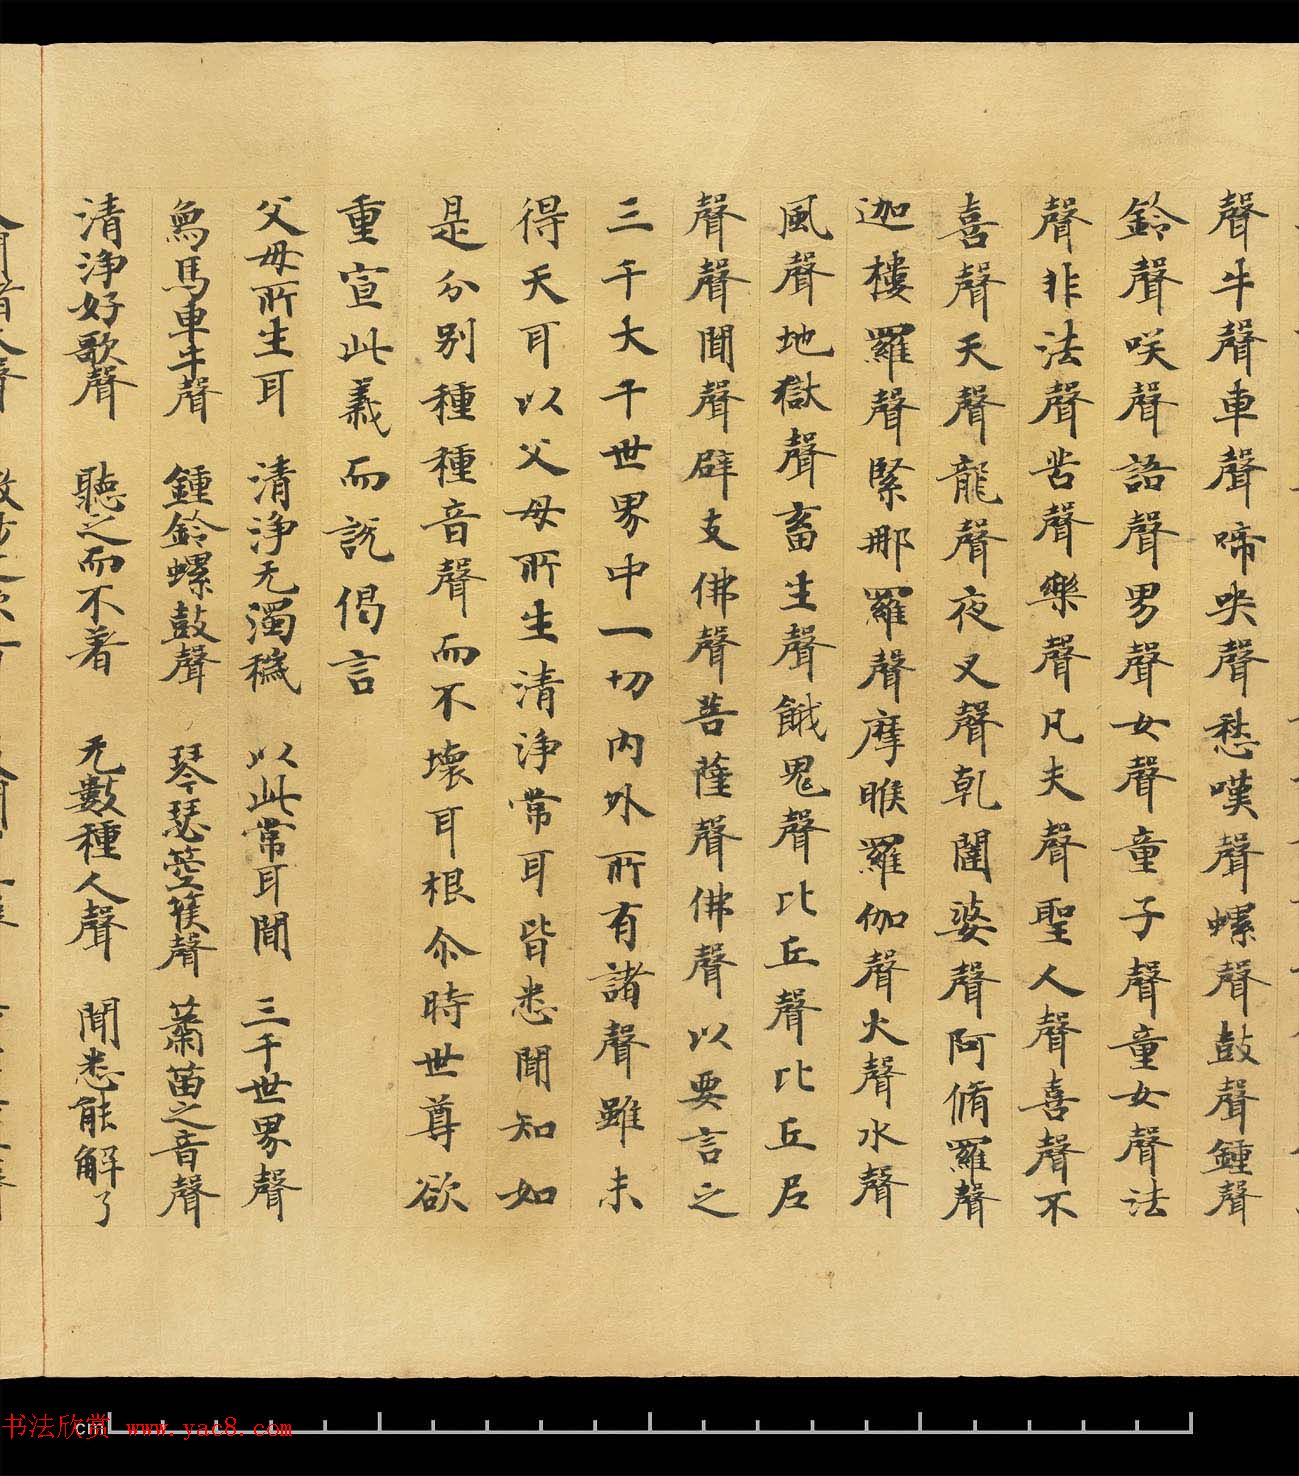 聲牛聲車聲啼哭聲愁嘆聲螺聲鼓聲鍾聲
鈴聲咲聲語聲男聲女聲童子聲童女聲法
聲非法聲苦聲樂聲凡夫聲聖人聲喜聲不
喜聲天聲龍聲夜叉聲乹闥婆聲阿脩羅聲
迦樓羅聲緊那羅聲摩睺羅伽聲火聲水聲
風聲地獄聲畜生聲餓鬼聲比丘聲比丘尼
聲聲聞聲辟支佛聲菩薩聲佛聲以要言之
三千大千世界中一切內外所有諸聲雖未
得天耳以父母所生清淨常耳皆悉聞知如
是分別種種音聲而不壞耳根尒時世尊欲
重宣此義而說偈言
父母所生耳 清淨无濁穢 以此常耳聞 三千世界聲
象馬車牛聲 鍾鈴螺鼓聲 琴瑟箜篌聲 簫笛之音聲
清淨好歌聲 聽之而不著 无數種人聲 聞悉能解了
书法欣赏 www.yac8.com
cm